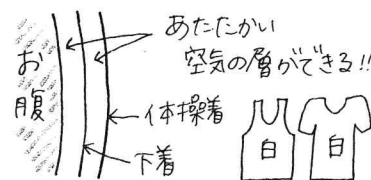 あたたかい
空気の層ができる!!
お腹
体操着
下着
白
白